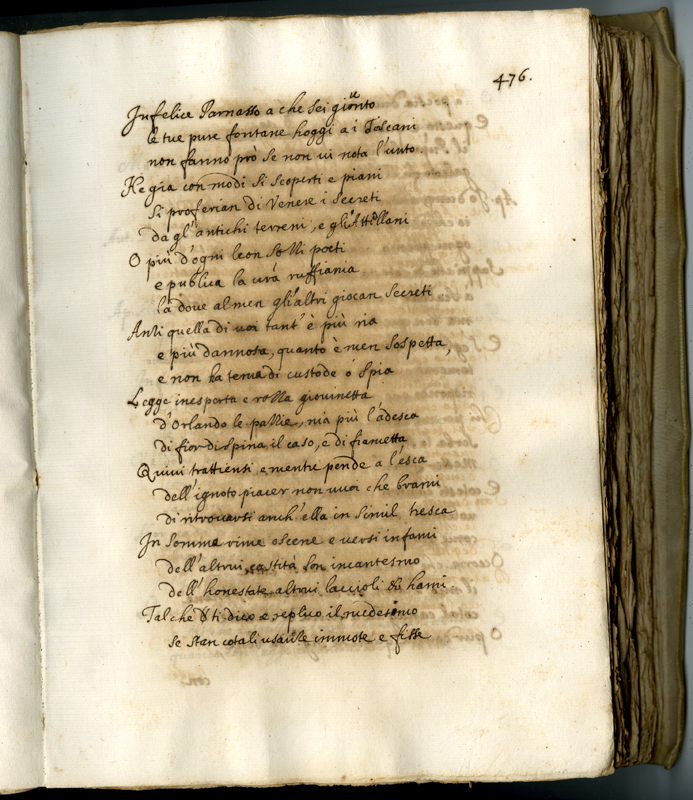 476.
Infelice Parnasso a che sei giunto
le tue pure fontane hoggi a i Toscani
non fanno prò se non ui nota l'unto
Ne gia con modi si scoperti e piani
si proferian di Venere i secreti
da gl'antichi terreni, e gl'Attellani
O più d'ogni leon folli poeti
e publica la urà ruffiania
la doue al men gl'altri giocan secreti
Anzi quella di uoi tant' è più ria
e più dannosa, quanto è men sospetta,
e non ha tema di custode ò spia
Legge inesperta e rozza giouinetta
d'Orlando le pazzie, ma più l'adesca
di fior di spina il caso, e di fiametta
Quiui trattienti e mentre pende a l'esca
dell'ignoto piacer non uuoi che brami
di ritrouarsi anch'ella in simil tresca
In somma rime oscene e uersi infami
dell'altrui castità son incantesmo
dell'honestate altrui laccioli & hami
Talche ti dico e replico il medesimo
se stan cotali usanze immote e fisse